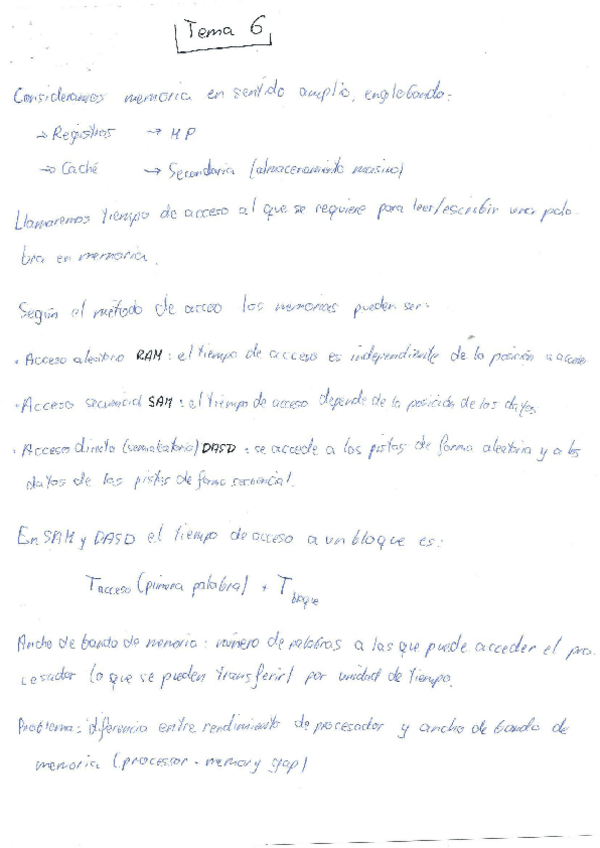 Tema 6
Consideramos memoria en sentido amplio, englobando:
→ Registros → MP
→ Caché → Secundaria (almacenamiento masivo)
Llamaremos tiempo de acceso al que se requiere para leer/escribir una pala-
bra en memoria.
Según el método de acceso las memorias pueden ser:
· Acceso aleatorio RAM: el tiempo de acceso es independiente de la posición a acceder
· Acceso secuencial SAM: el tiempo de acceso depende de la posición de los datos
· Acceso directo (semialeatorio) DASD: se accede a las pistas de forma aleatoria y a los
datos de las pistas de forma secuencial.
En SAM y DASD el tiempo de acceso a un bloque es:
Tacceso (primera palabra) + Tbloque
Ancho de banda de memoria: número de palabras a las que puede acceder el pro-
cesador (o que se pueden transferir) por unidad de tiempo.
Problema: diferencia entre rendimiento de procesador y ancho de banda de
memoria (processor-memory gap)